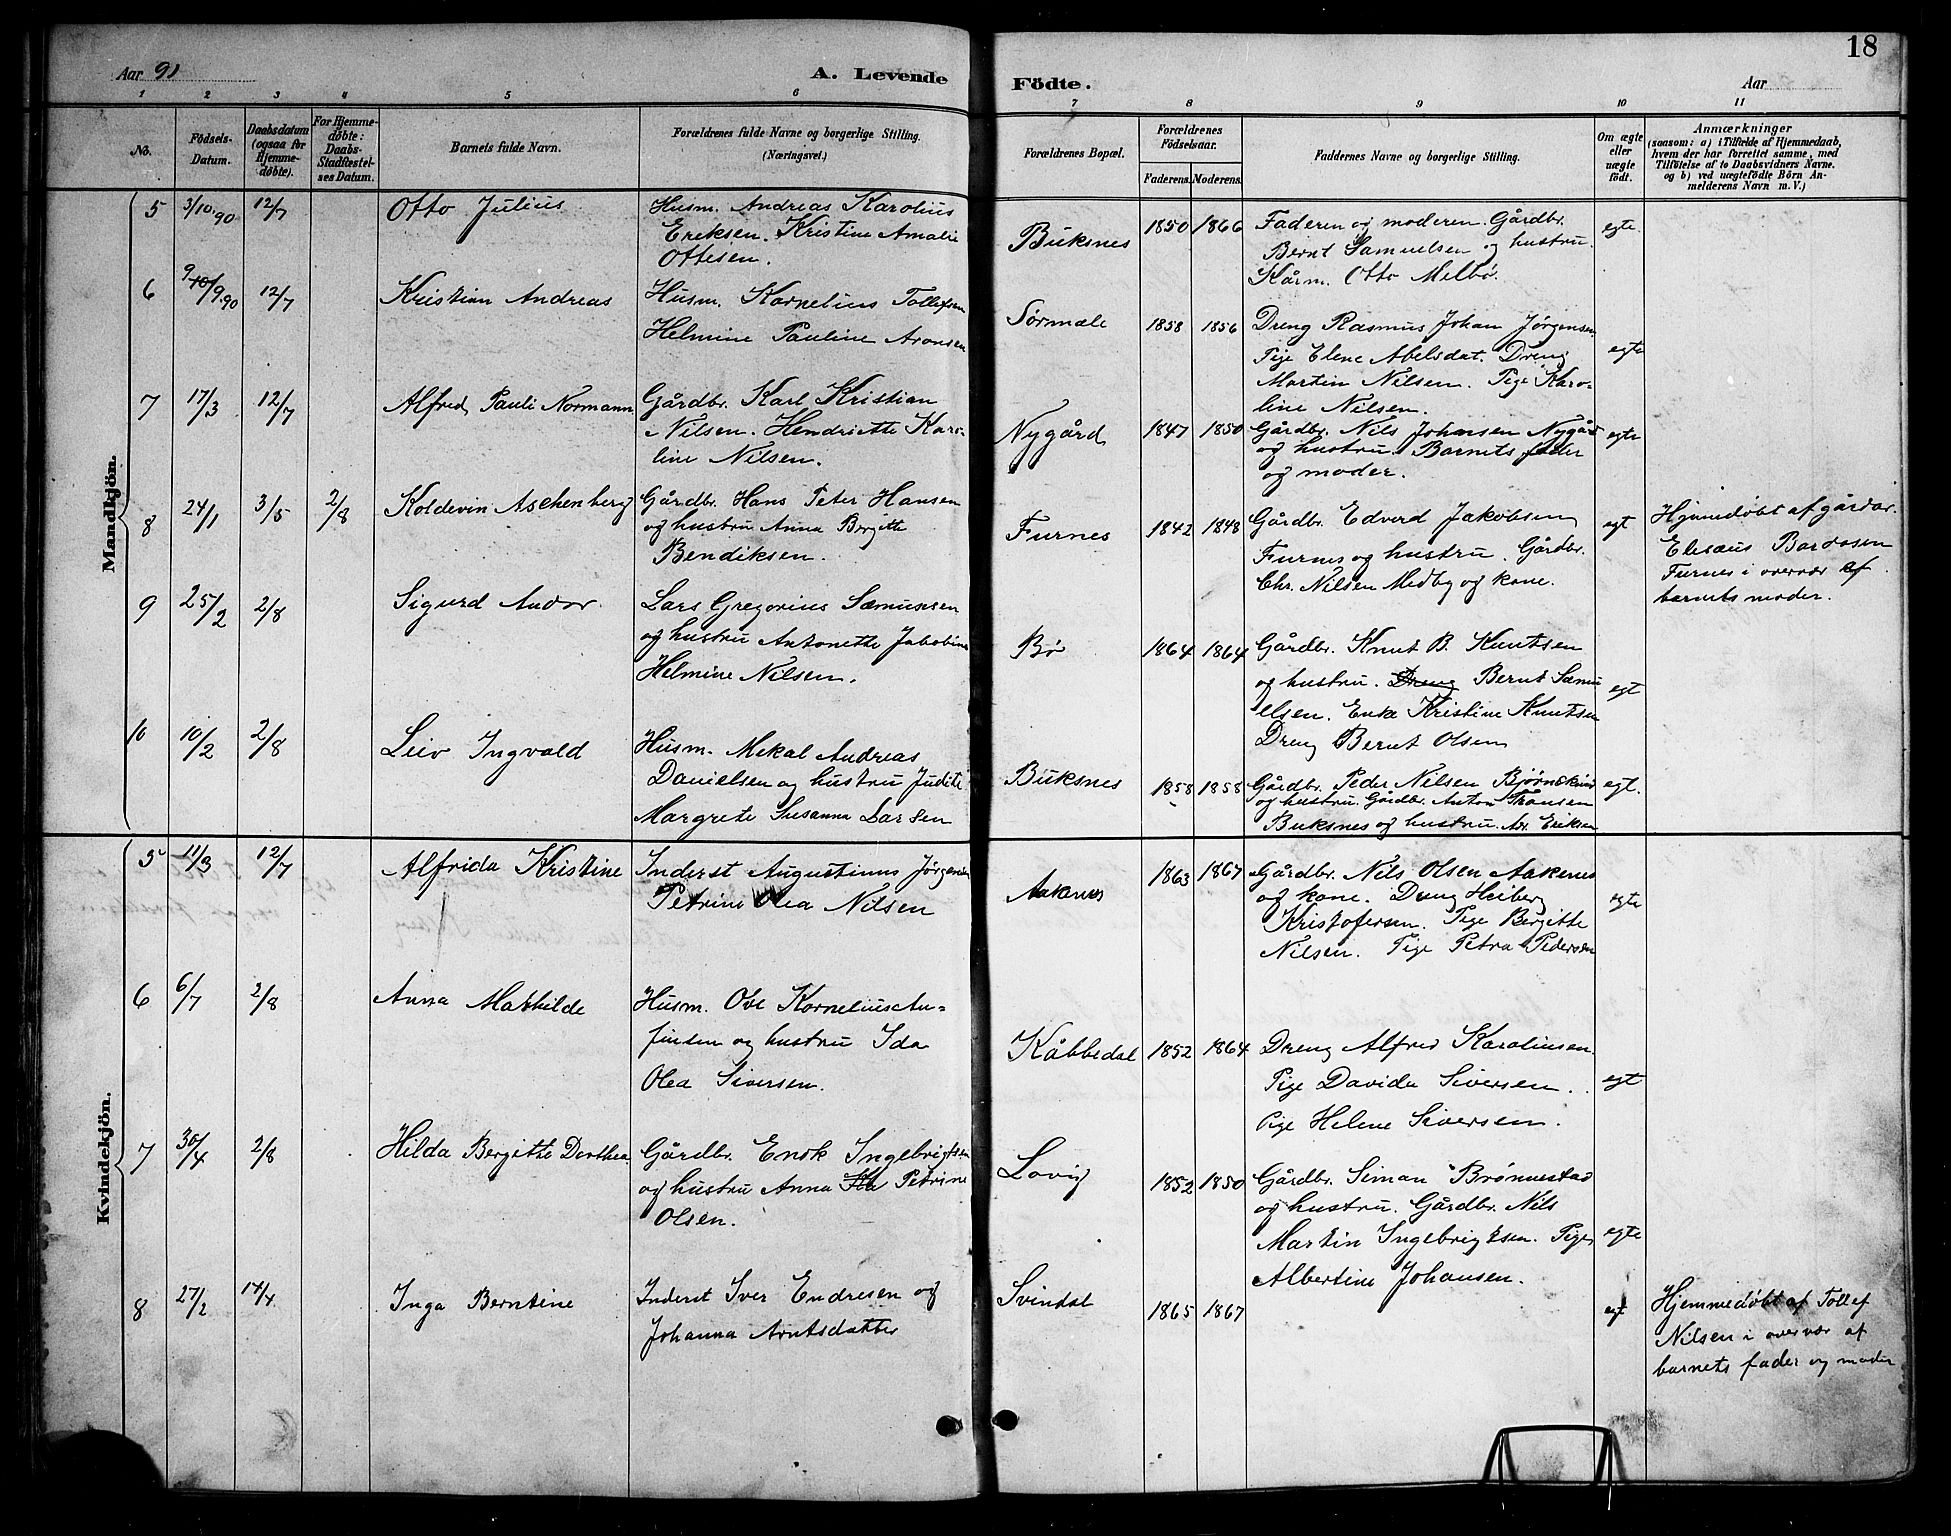 18
Aar 91
A. Levende
Födte.
Aar
1 2 3 4 5 6 7 8 9 10 11
No.
Födsels-
Datum.
Daabsdatum
(ogsaa for
Hjemme-
döbte).
For Hjemme-
döbte:
Daabs-
Stadfæstel-
ses Datum.
Barnets fulde Navn.
Forældrenes fulde Navne og borgerlige Stilling.
(Næringsvei.)
Forældrenes Bopæl.
Forældrenes
Födselsaar.
Faderens. Moderens.
Faddernes Navne og borgerlige Stilling.
Om ægte
eller
uægte
födt.
Anmærkninger
(saasom: a) i Tilfælde af Hjemmedaab,
hvem der har forrettet samme, med
Tilföielse af to Daabsvidners Navne.
og b) ved uægtefödte Börn An-
melderens Navn m. V.)
Mandkjön.
5 3/10.90 12/7 Otto Julius
Husm. Andreas Karolius
Eriksen. Kristine Amalie
Ottesen.
Buksnes 1850 1866
Faderen og moderen. Gårdbr.
Bernt Samuelsen og hustru.
Kårm. Otto Melbö.
egte
6 9/9.90 12/7 Kristian Andreas
Husm. Kornelius Tollefsen
Helmine Pauline Aronsen
Sørmæle 1858 1856
Dreng Rasmus Johan Jörgensen
Pige Elene Abelsdat. Dreng
Martin Nilsen. Pige Karo-
line Nilsen.
egte
7 17/3 12/7 Alfred Pauli Normann
Gårdbr. Karl Kristian
Nilsen. Hendriette Karo-
line Nilsen.
Nygård 1847 1850
Gårdbr. Nils Johansen Nygård
og hustru. Barnets fader
og moder.
egte
8 24/1 3/5 2/8 Koldevin Aschenberg
Gårdbr. Hans Peter Hansen
og hustru Anna Bergitte
Bendiksen.
Furnes 1842 1848
Gårdbr. Edverd Jakobsen
Furnes og hustru. Gårdbr.
Chr. Nilsen Medby og kone.
egt
Hjemmedøbt af gårdbr.
Elesæus Bardosen
Furnes i overvær af
barnets moder.
9 25/2 2/8 Sigurd Andor
Lars Gregorius Sæmunsen
og hustru Antonette Jakobine
Helmine Nilsen.
Bø 1864 1864
Gårdbr. Knut B. Knutsen
og hustru. Dreng Bernt Samu
elsen. Enke Kristine Knutsen
Dreng Bernt Olsen
egt
10 10/2 2/8 Leiv Ingvald
Husm. Mekal Andreas
Danielsen og hustru Judite
Margrete Susanna Larsen
Buksnes 1858 1858
Gårdbr. Peder Nilsen Bjørnskin
og hustru. Gårdbr. Anton
Buksnes og hustru. Adr. Eriksen
egt.
Kvindekjön.
5 11/3 12/7 Alfrida Kristine
Inderst Augustinus Jørgensen
Petrine Olea Nilsen
Aakenes 1863 1867
Gårdbr. Nils Olsen Aakenes
og kone. Dreng Heiberg
Kristofersen. Pige Bergitte
Nilsen. Pige Petra Pedersen
egte
6 6/7 2/8 Anna Mathilde
Husm. Ove Kornelius An-
finsen og hustru Ida
Olea Siversen.
Kåbbedal 1852 1864
Dreng Alfred Karolinsen.
Pige Davida Siversen.
Pige Helene Siversen.
egt
7 30/4 2/8 Hilda Bergitte Dorthea
Gårdbr. Enok Ingebrigtsen
og hustru Anna Petrine
Olsen.
Lovig 1852 1850
Gårdbr. Siman Brønnestad
og hustru. Gårdbr. Nils
Martin Ingebrigtsen. Pige
Albertine Johansen.
egte
8 27/2 17/4 Inga Berntine
Inderst Iver Endresen og
Johanna Arntsdatter
Svindal 1865 1867
egt
Hjemmedøbt af Tollef
Nilsen i overvær af
barnets fader og moder